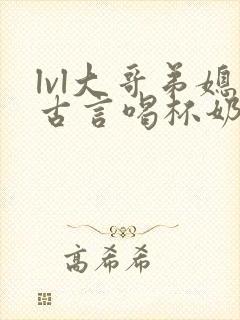 lvl大哥弟媳
古言喝杯奶
高希希